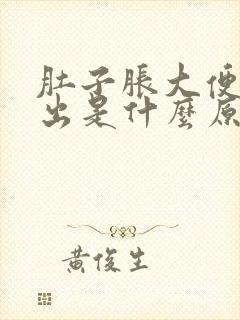 肚子脹大便
出是什麼原
黃俊生